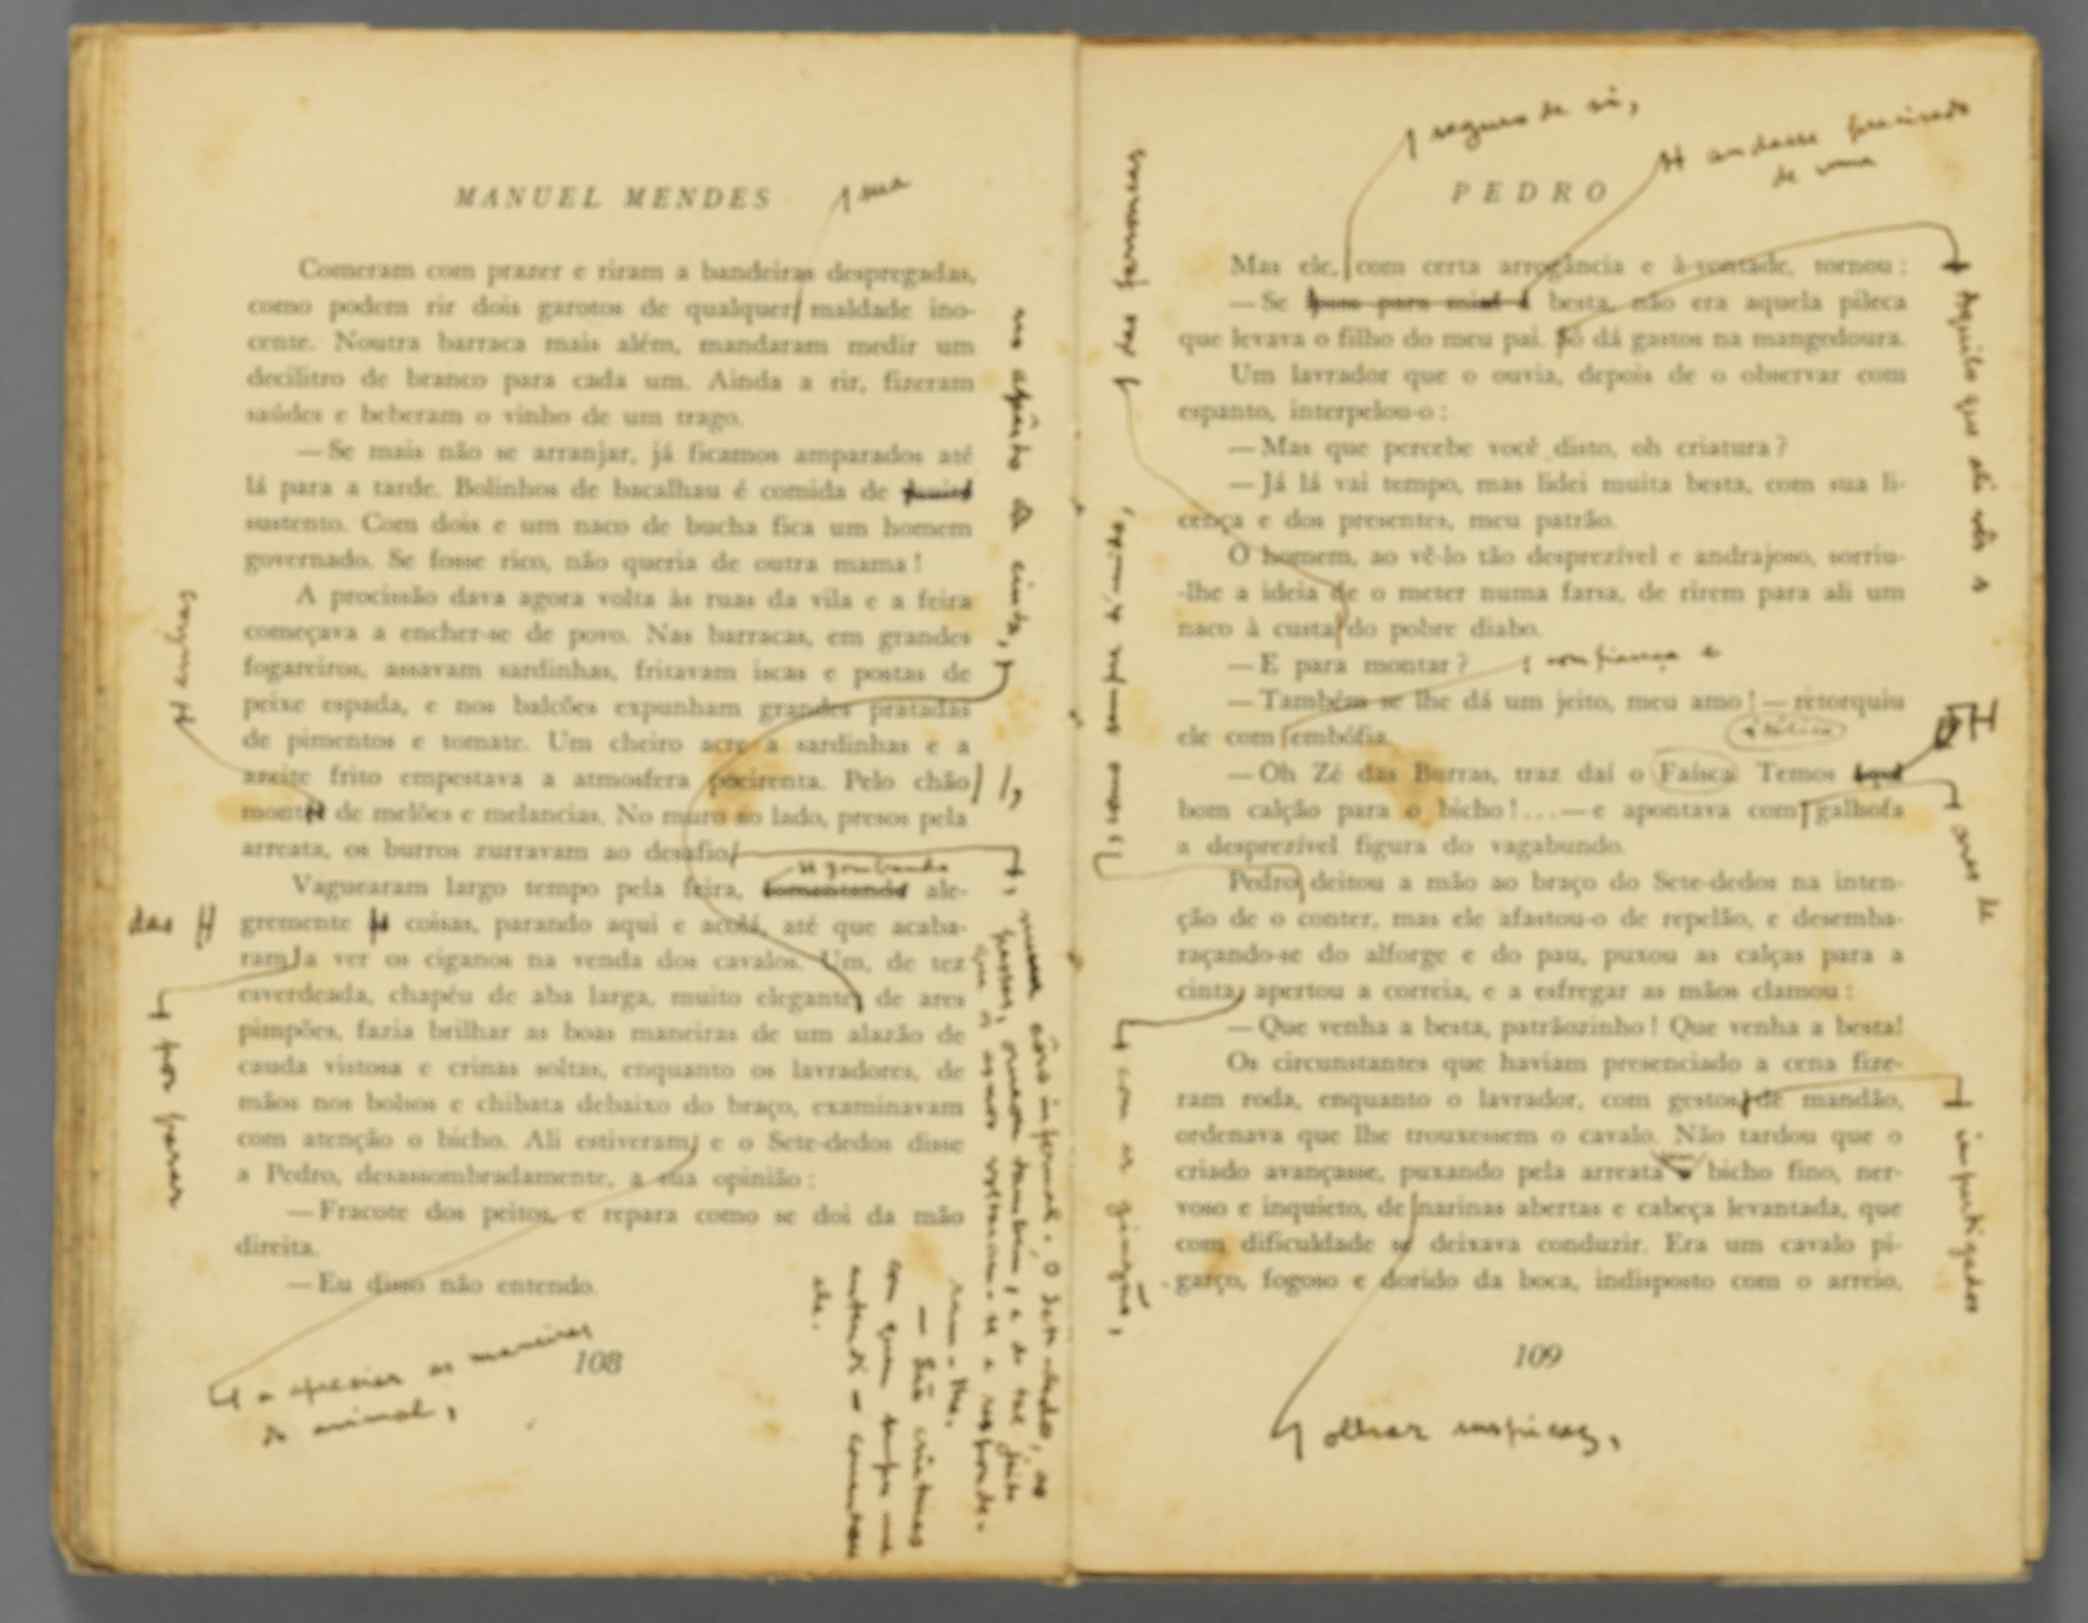 MANUEL MENDES
sua
Comeram com prazer e riram a bandeiras despregadas,
como podem rir dois garotos de qualquer maldade ino-
cente. Noutra barraca mais além, mandaram medir um
decilitro de branco para cada um. Ainda a rir, fizeram
saúdes e beberam o vinho de um trago.
— Se mais não se arranjar, já ficamos amparados até
lá para a tarde. Bolinhos de bacalhau é comida de
sustento. Com dois e um naco de bucha fica um homem
governado. Se fosse rico, não queria de outra mama!
A procissão dava agora volta às ruas da vila e a feira
começava a encher-se de povo. Nas barracas, em grandes
fogareiros, assavam sardinhas, fritavam iscas e postas de
peixe espada, e nos balcões expunham grandes pratadas
de pimentos e tomate. Um cheiro acre a sardinhas e a
azeite frito empestava a atmosfera poeirenta. Pelo chão
montes de melões e melancias. No muro ao lado, presos pela
arreata, os burros zurravam ao desafio
zombando
Vaguearam largo tempo pela feira, comentando ale-
gremente as coisas, parando aqui e acolá, até que acaba-
ram a ver os ciganos na venda dos cavalos. Um, de tez
esverdeada, chapéu de aba larga, muito elegante, de ares
pimpões, fazia brilhar as boas maneiras de um alazão de
cauda vistosa e crinas soltas, enquanto os lavradores, de
mãos nos bolsos e chibata debaixo do braço, examinavam
com atenção o bicho. Ali estiveram, e o Sete-dedos disse
a Pedro, desassombradamente, a sua opinião:
— Fracote dos peitos, e repara como se doi da mão
direita.
— Eu disso não entendo.
108
das
por parar
a apreciar as maneiras
do animal,
no apêrto da cinta,
numa côro infernal. O Sete-dedos, ao
ram-lhe.
— São criaturas
com quem sempre me
entendi — comentou
ele.
PEDRO
seguro de si,
andasse precisado
de uma
Mas ele, com certa arrogância e à-vontade, tornou:
— Se fosse para mim a besta, não era aquela pileca
que levava o filho do meu pai. Só dá gastos na mangedoura.
Um lavrador que o ouvia, depois de o observar com
espanto, interpelou-o:
— Mas que percebe você disto, oh criatura?
— Já lá vai tempo, mas lidei muita besta, com sua li-
cença e dos presentes, meu patrão.
O homem, ao vê-lo tão desprezível e andrajoso, sorriu-
-lhe a ideia de o meter numa farsa, de rirem para ali um
naco à custa do pobre diabo.
— E para montar?
confiança e
— Também se lhe dá um jeito, meu amo! — retorquiu
ele com embófia.
— Oh Zé das Burras, traz daí o Faísca. Temos aqui
bom calção para o bicho!... — e apontava com galhofa
a desprezível figura do vagabundo.
Pedro deitou a mão ao braço do Sete-dedos na inten-
ção de o conter, mas ele afastou-o de repelão, e desemba-
raçando-se do alforge e do pau, puxou as calças para a
cinta, apertou a correia, e a esfregar as mãos clamou:
— Que venha a besta, patrãozinho! Que venha a besta!
Os circunstantes que haviam presenciado a cena fize-
ram roda, enquanto o lavrador, com gestos de mandão,
ordenava que lhe trouxessem o cavalo. Não tardou que o
criado avançasse, puxando pela arreata o bicho fino, ner-
voso e inquieto, de narinas abertas e cabeça levantada, que
com dificuldade se deixava conduzir. Era um cavalo pi-
garço, fogoso e dorido da boca, indisposto com o arreio,
109
Aquilo que ali vês
ares de
olhar suspicaz,